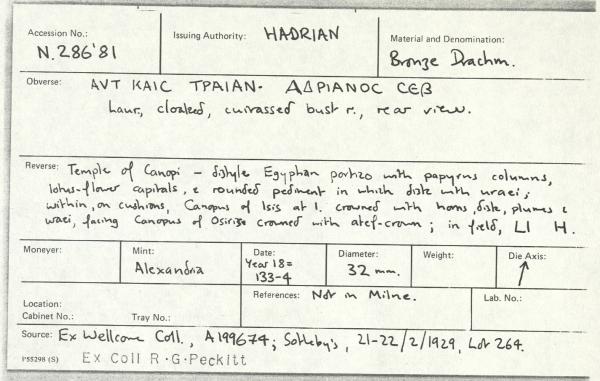 Accession No.:
N.286'81
Issuing Authority: HADRIAN
Material and Denomination:
Bronze Drachm.
Obverse: AVT KAIC TPAIAN· AΔPIANOC CEB
Laur, cloaked, cuirassed bust r., rear view.
Reverse: Temple of Canopi – distyle Egyptian portico with papyrus columns,
lotus-flower capitals, & rounded pediment in which disk with uraei;
within, on cushions, Canopus of Isis at l. crowned with horns, disk, plumes &
uraei, facing Canopus of Osiris crowned with atef-crown; in field, LI H.
Moneyer:
Mint:
Alexandria
Date:
Year 18 =
133-4
Diameter:
32 mm.
Weight:
Die Axis:
↑
Location:
Cabinet No.: Tray No.:
References: Not in Milne.
Lab. No.:
Source: Ex Wellcome Coll., A199674; Sotheby's, 21-22/2/1929, Lot 264.
P55298 (S) Ex Coll R·G·Peckitt